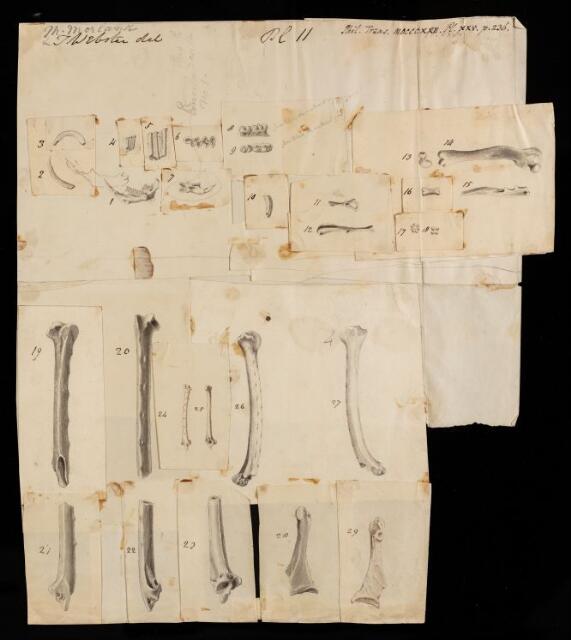 M. Morland
T Webster del
Pl 11
Phil. Trans. MDCCCXXII. Pl. XXV. p. 236.
3
4
5
6
8
9
2
1
7
10
11
12
13
14
16
15
17
18
19
20
24
25
26
27
21
22
23
28
29